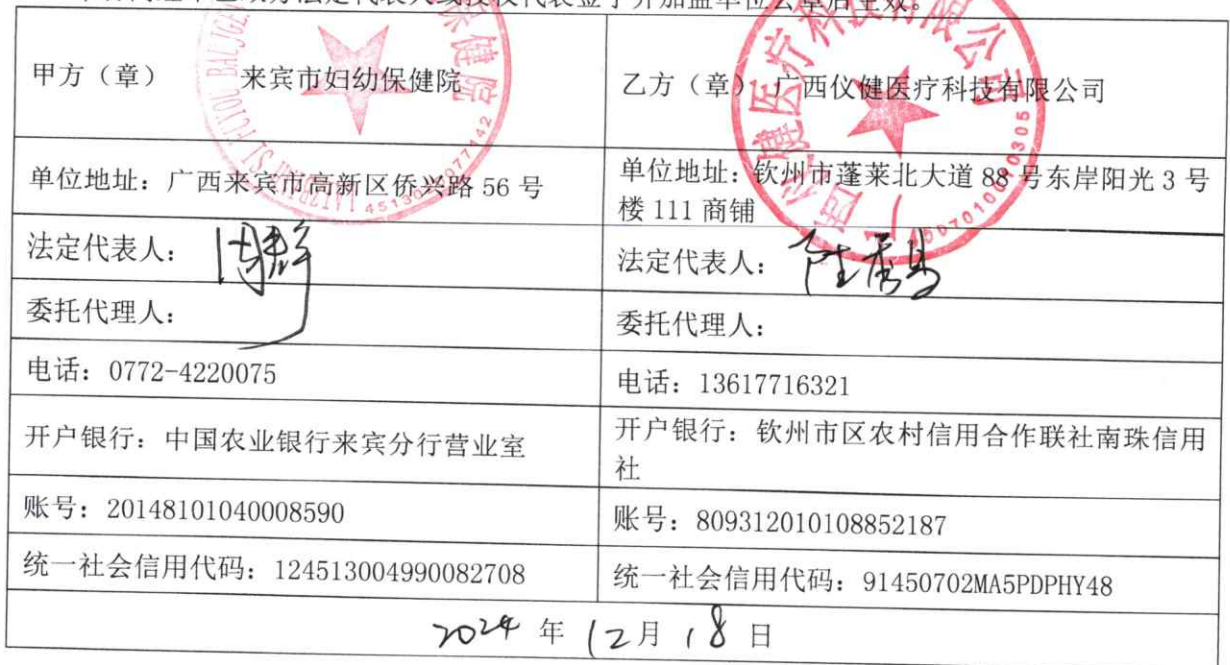 法定代表人或授权代表签字并加盖单位公章后生效。
甲方（章） 来宾市妇幼保健院
乙方（章） 广西仪健医疗科技有限公司
单位地址：广西来宾市高新区侨兴路 56 号
单位地址：钦州市蓬莱北大道 88 号东岸阳光 3 号
楼 111 商铺
法定代表人：
法定代表人：
委托代理人：
委托代理人：
电话：0772-4220075
电话：13617716321
开户银行：中国农业银行来宾分行营业室
开户银行：钦州市区农村信用合作联社南珠信用
社
账号：20148101040008590
账号：809312010108852187
统一社会信用代码：124513004990082708
统一社会信用代码：91450702MA5PDPHY48
2024 年 12 月 18 日